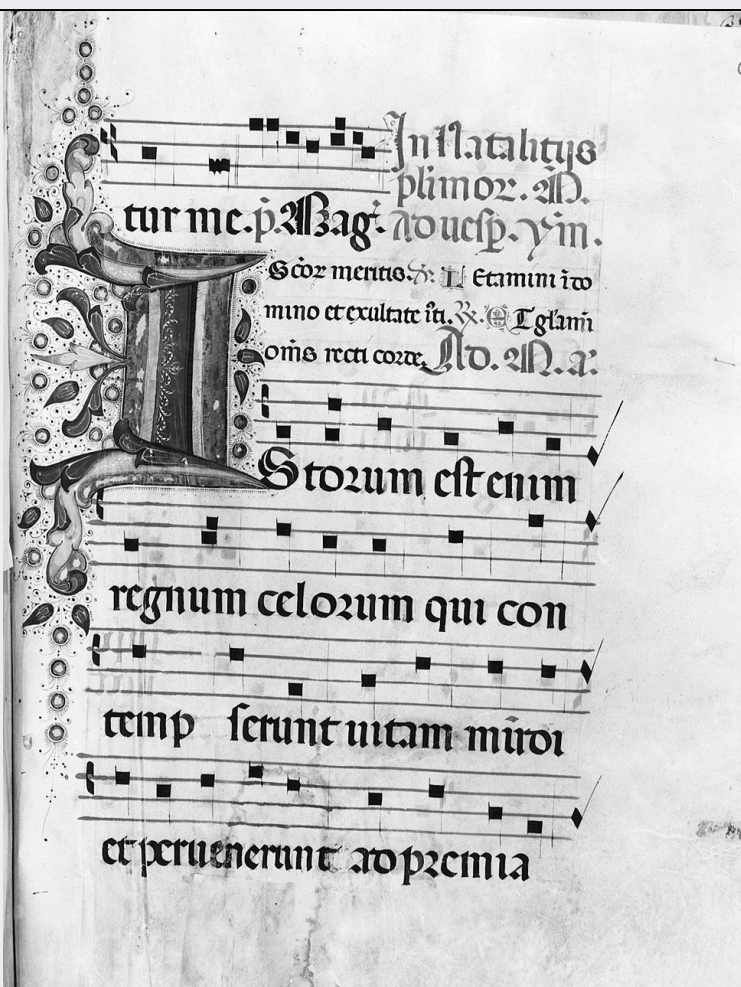 In Natalitijs
plimor. M.
tur me. p̄. Mag̅t. Ad uesp. ym.
I Scōr meritis. ℟. L Etamini ī do
mino et exultate iti. ℟. E T glami
oms recti corde. Ad. M. a.
Storum est enim
regnum celorum qui con
temp serunt uitam mūdi
et peruenerunt ad premia